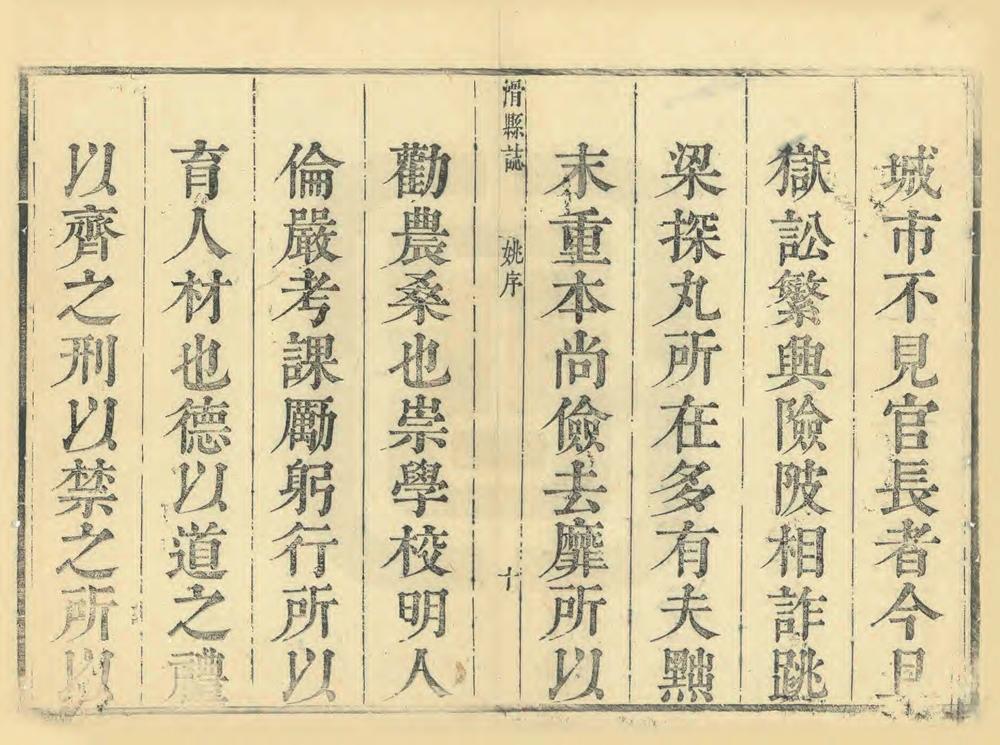 城市不見官長者今且
獄訟繁興險陂相詐跳
梁探丸所在多有夫黜
末重本尚儉去靡所以
滑縣誌 姚序 十
勸農桑也崇學校明人
倫嚴考課勵躬行所以
育人材也德以道之禮
以齊之刑以禁之所以